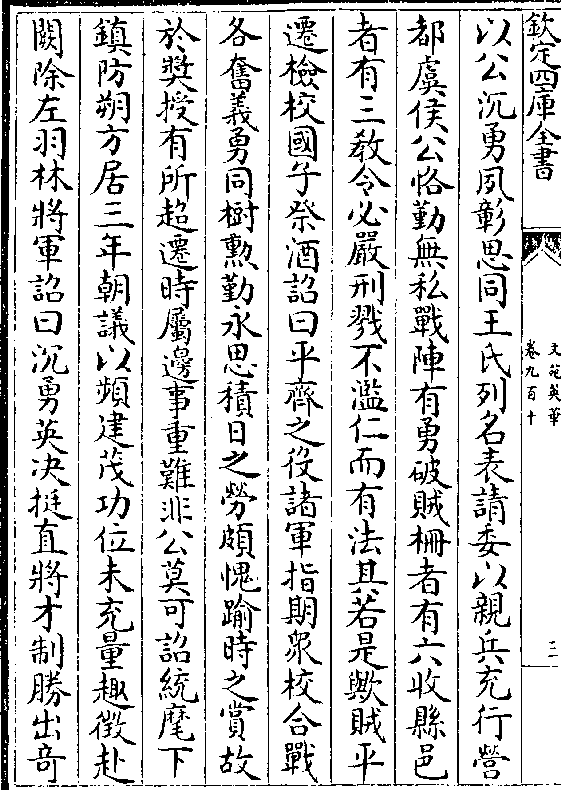 欽定四庫全書
文苑英華
卷九百十
三
以公沉勇夙彰思同王氏列名表請委以親兵充行營
都虞侯公恪勤無私戰陣有勇破賊柵者有六收縣邑
者有三教令必嚴刑戮不濫仁而有法其若是歟賊平
遷檢校國子祭酒詔曰平齊之役諸軍指期眾校合戰
各奮義勇同樹勲勤永思積日之勞頗愧踰時之賞故
於奬授有所超遷時屬邊事重難非公莫可詔統麾下
鎮防朔方居三年朝議以頻建茂功位未充量趣徴赴
闕除左羽林將軍詔曰沉勇英決挺直將才制勝出奇